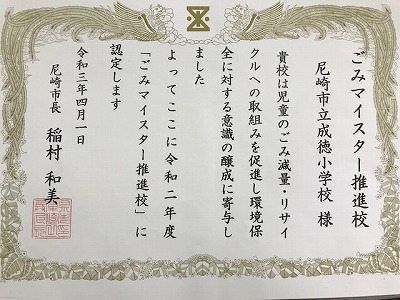 ごみマイスター推進校
尼崎市立成徳小学校 様
貴校は児童のごみ減量・リサイ
クルへの取組みを促進し環境保
全に対する意識の醸成に寄与し
ました
よってここに令和二年度
「ごみマイスター推進校」に
認定します
令和三年四月一日
尼崎市長 稲村 和美